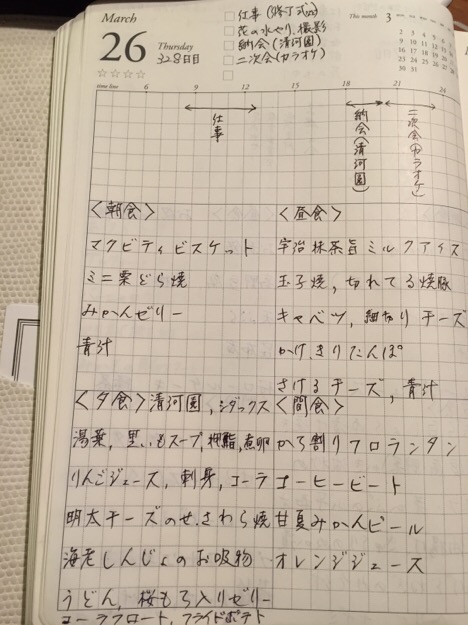 March
26
Thursday
328日目
仕事(修了式)
花の水やり、撮影
納会(清河園)
二次会(カラオケ)
This month 3
time line 6 9 12 15 18 21 24
仕事
納会(清河園)
二次会(カラオケ)
<朝食>
マクビティビスケット
ミニ栗どら焼
みかんゼリー
青汁
<昼食>
宇治抹茶旨ミルクアイス
玉子焼,切れてる焼豚
キャベツ,細切りチーズ
かけ,きりたんぽ
さけるチーズ,青汁
<夕食>清河園,シダックス
湯葉,里いもスープ,煮卵
りんごジュース,刺身,コーラ
明太チーズのせ,さわら焼
海老しんじょのお吸物
うどん,桜もち入りゼリー
コーラフロート,フライドポテト
<間食>
かち割りフロランタン
コーヒービート
甘夏みかんピール
オレンジジュース